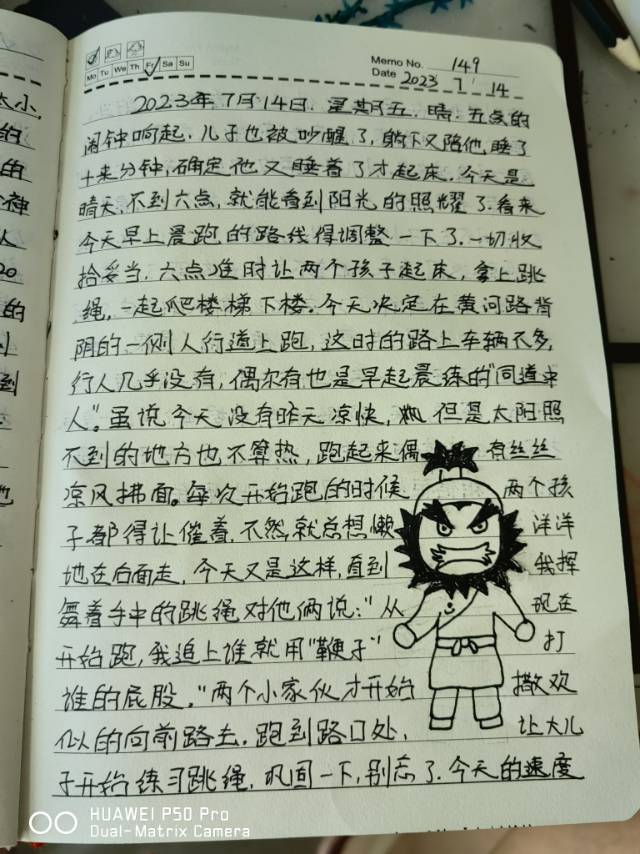 Mo Tu We Th Fr Sa Su
Memo No. 149
Date 2023 7 14
2023年7月14日. 星期五. 晴. 五点的
闹钟响起. 儿子也被吵醒了, 躺下又陪他睡了
十来分钟, 确定他又睡着了才起床. 今天是
晴天, 不到六点, 就能看到阳光的照耀了. 看来
今天早上晨跑的路线得调整一下了. 一切收
拾妥当. 六点准时让两个孩子起床, 拿上跳
绳, 一起爬楼梯下楼. 今天决定在黄河路背
阴的一侧人行道上跑, 这时的路上车辆不多,
行人几乎没有, 偶尔有也是早起晨练的"同道中
人". 虽说今天没有昨天凉快, 但是太阳照
不到的地方也不算热, 跑起来偶 有丝丝
凉风拂面。每次开始跑的时候 两个孩
子都得让催着, 不然就总想懒 洋洋
地在后面走, 今天又是这样, 直到 我挥
舞着手中的跳绳对他俩说:"从 现在
开始跑, 我追上谁就用"鞭子" 打
谁的屁股."两个小家伙才开始 撒欢
似的向前跑去. 跑到路口处, 让大儿
子开始练习跳绳, 巩固一下, 别忘了. 今天的速度
HUAWEI P50 Pro
Dual-Matrix Camera